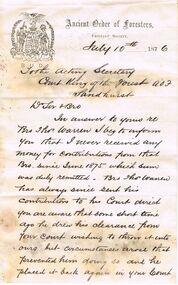 Ancient Order of Foresters,
Friendly Society.
July 10th 1876
To the Acting Secretary
Court King of the Forest AOF
Sandhurst
D Sir & Bro
In answer to yours re
Bro Thos Warren I beg to inform
you that I never received any
money for Contributions from that
Bro since June 1875 which sum
was duly remitted. Bro Thos Warren
has always since sent his
Contributions to his Court direct
you are aware that some short time
ago he drew his clearance from
your Court wishing to throw it into
ours but circumstances arose that
prevented him doing so and he
placed it back again in your Court